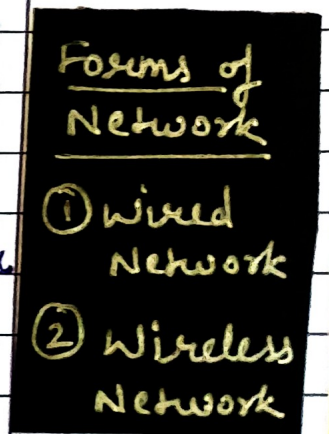 Forms of
Network
① Wired
Network
② Wireless
Network